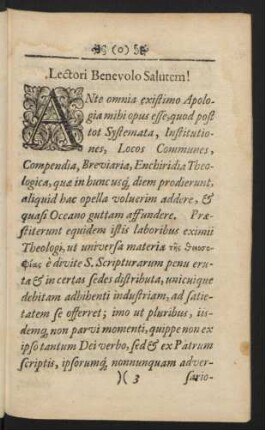 (o)
Lectori Benevolo Salutem!
ANte omnia existimo Apolo-
gia mihi opus esse, quod post
tot Systemata, Institutio-
nes, Locos Communes,
Compendia, Breviaria, Enchiridia Theo-
logica, quæ in huncusq; diem prodierunt,
aliquid hac opella volucrim addere, &
quasi Oceano guttam affundere. Præ-
stiterunt equidem istis laboribus eximii
Theologi, ut universa materia τῆς θεοσο-
φίας è divite S. Scripturarum penu eru-
ta & in certas sedes distributa, unicuique
debitam adhibenti industriam, ad satie-
tatem se offerret; imo ut pluribus, iis-
demq; non parvi momenti, quippe non ex
ipso tantum Dei verbo, sed & ex Patrum
scriptis, ipsorumq; nonnunquam adver-
)( 3 sario-